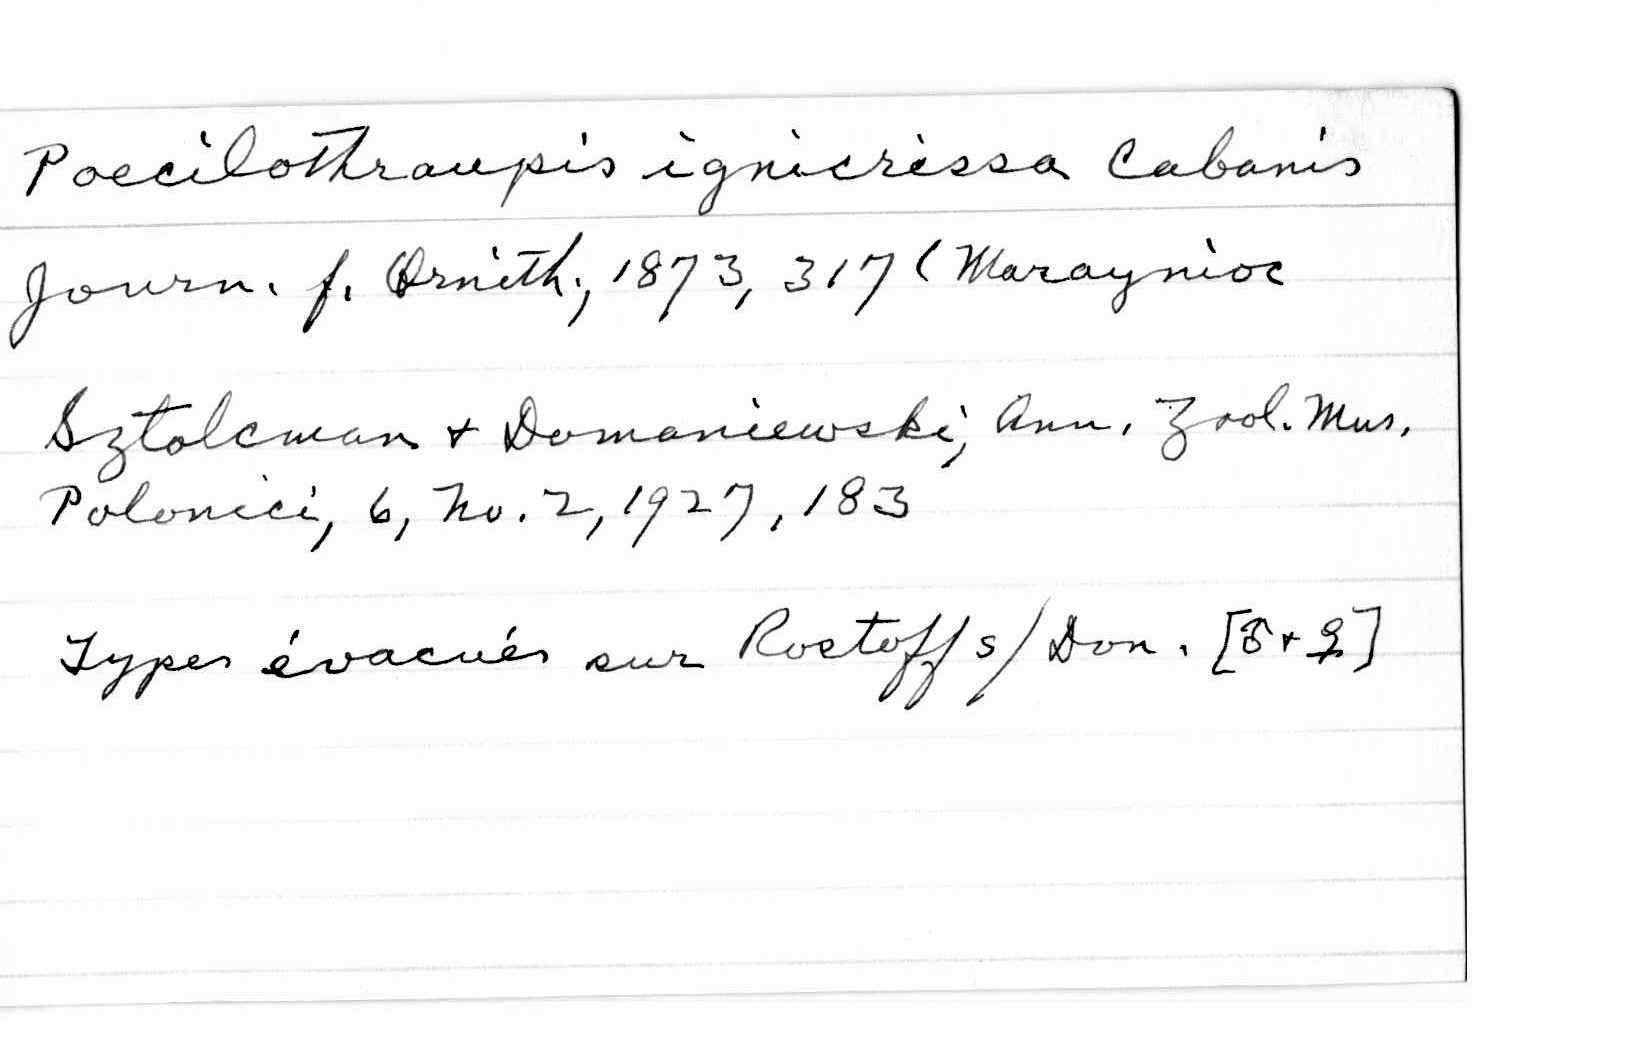 Poecilothraupis ignicrissa Cabanis
Journ. f. Ornith., 1873, 317 (Maraynioc
Sztolcman + Domaniewski, Ann. Zool. Mus.
Polonici, 6, No. 2, 1927, 183
Types évacués sur Rostoff s/Don. [♂ + ♀]